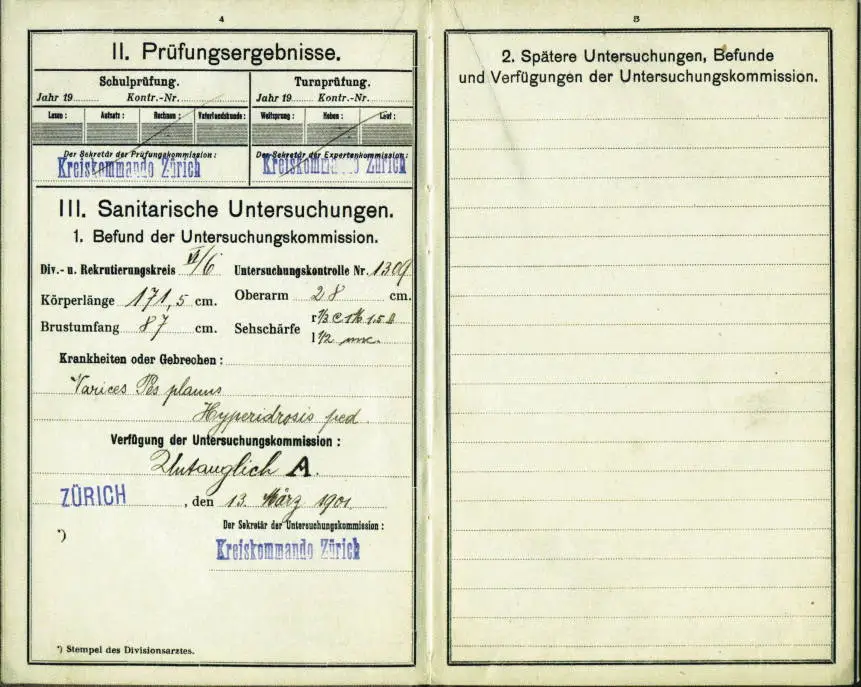 4
II. Prüfungsergebnisse.
Schulprüfung.
Jahr 19 Kontr.-Nr.
Lesen: Aufsatz: Rechnen: Vaterlandskunde:
Der Sekretär der Prüfungskommission:
Kreiskommando Zürich
Turnprüfung.
Jahr 19 Kontr.-Nr.
Weitsprung: Heben: Lauf:
Der Sekretär der Expertenkommission:
Kreiskommando Zürich
III. Sanitarische Untersuchungen.
1. Befund der Untersuchungskommission.
Div.- u. Rekrutierungskreis VI/6 Untersuchungskontrolle Nr. 1309
Körperlänge 171,5 cm. Oberarm 28 cm.
Brustumfang 87 cm. Sehschärfe r
l 1/2
Krankheiten oder Gebrechen:
Varices Pes planus
Hyperidrosis ped.
Verfügung der Untersuchungskommission:
Untauglich A.
ZÜRICH, den 13. März 1901.
Der Sekretär der Untersuchungskommission:
*)
Kreiskommando Zürich
*) Stempel des Divisionsarztes.
5
2. Spätere Untersuchungen, Befunde
und Verfügungen der Untersuchungskommission.